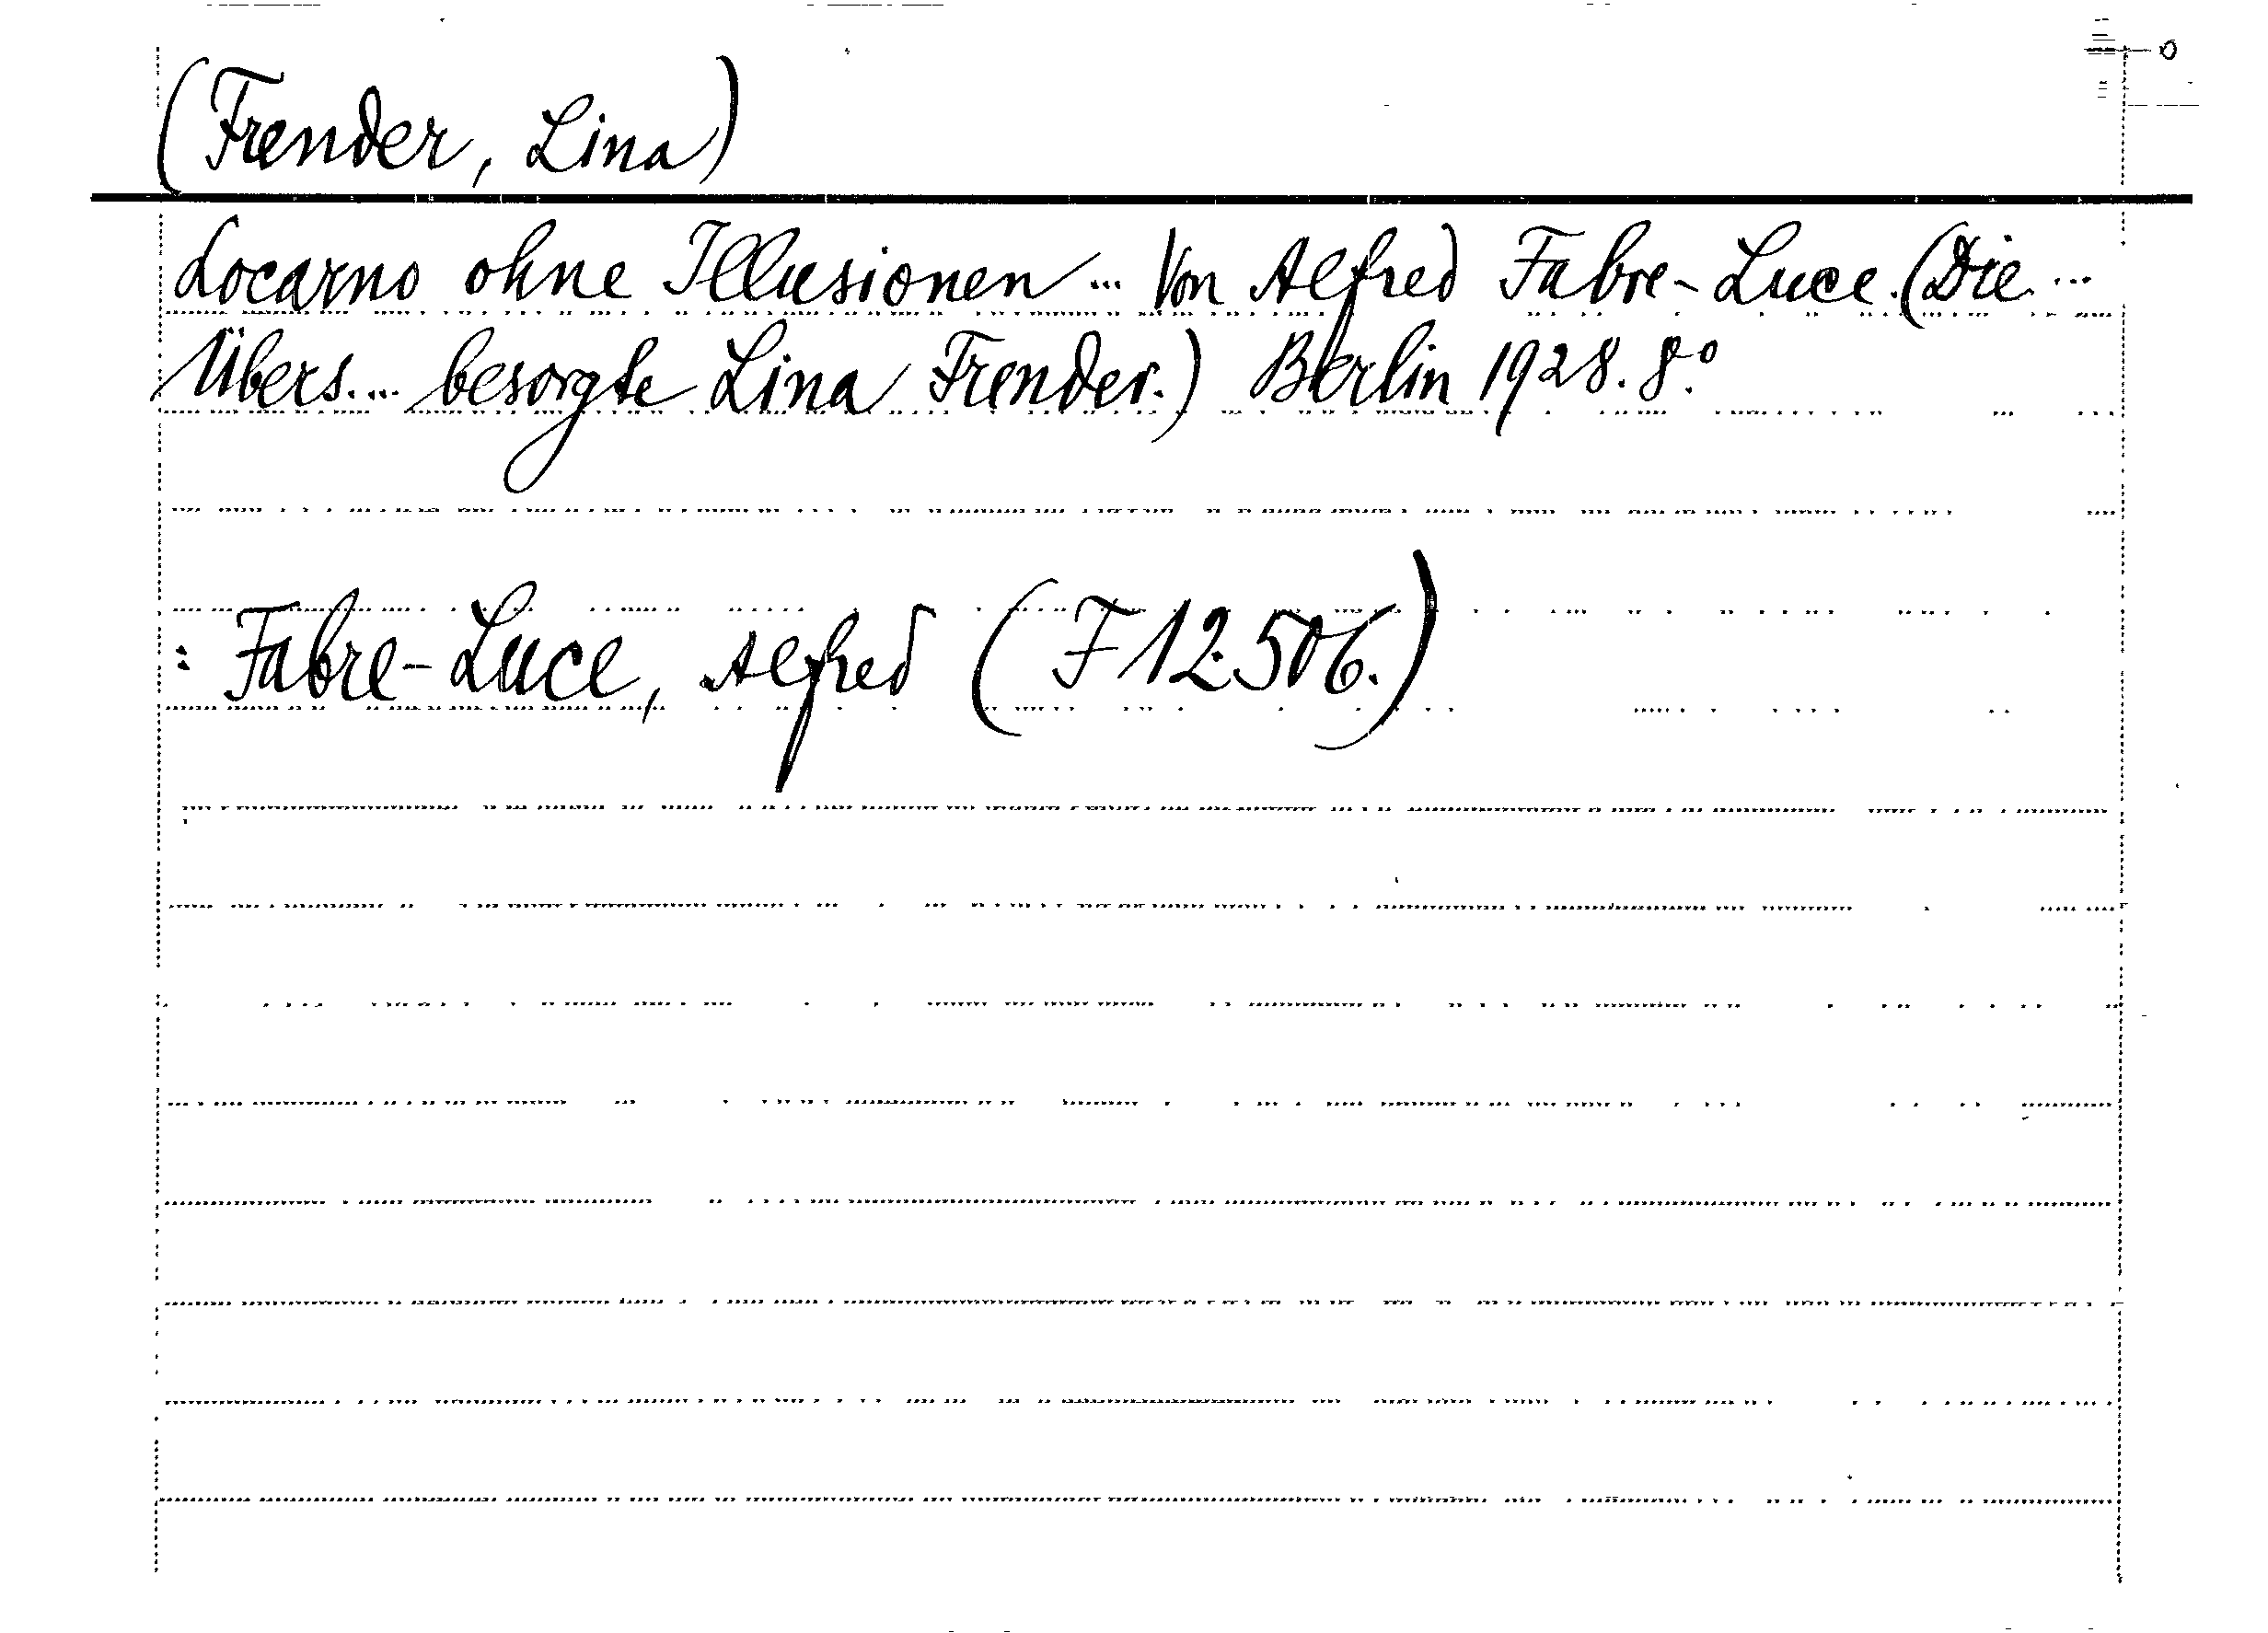 (Frender, Lina)
Locarno ohne Illusionen ... Von Alfred Fabre-Luce. (Die ...
Übers. ... besorgte Lina Frender.) Berlin 1928. 8.°
: Fabre-Luce, Alfred (F 12.506.)